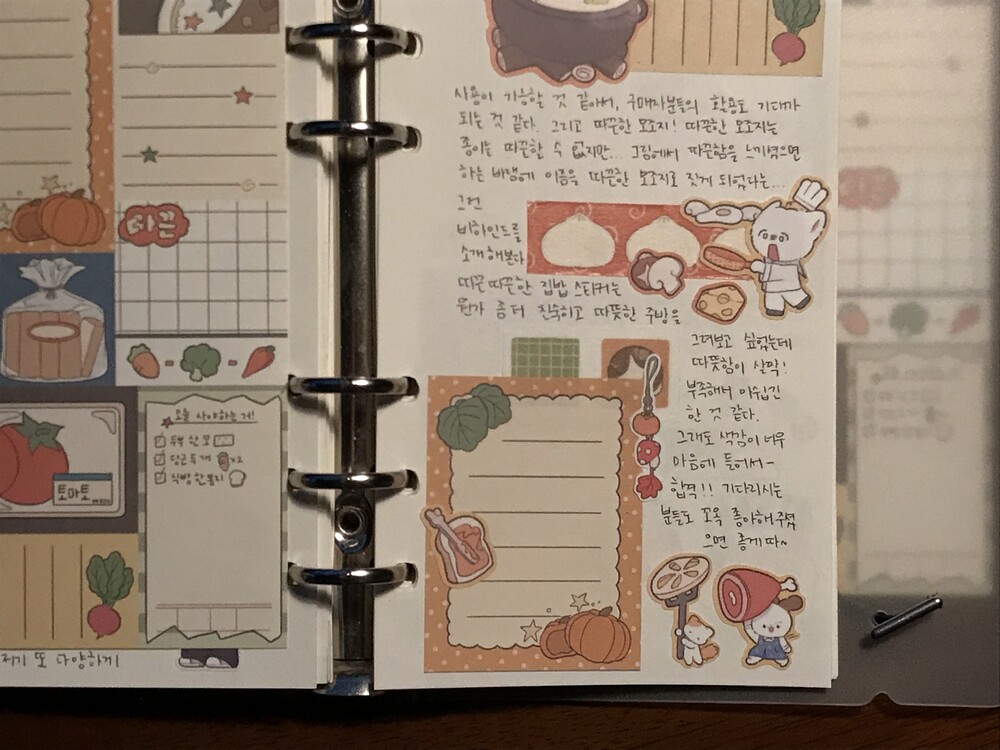 따끈
토마토
오늘 사야하는 거!
두부 한 모
당근 두 개 x2
식빵 한봉지
또 다양하게
사용이 가능할 것 같아서, 구매자분들의 활용도 기대가
되는 것 같다. 그리고 따끈한 모조지! 따끈한 모조지는
종이는 따끈할 수 없지만... 그림에서 따끈함을 느끼셨으면
하는 바램에 이름을 따끈한 모조지로 짓게 되었다는...
그런
비하인드를
소개해본다
따끈따끈한 집밥 스티커는
뭔가 좀 더 친숙하고 따뜻한 주방을
그려보고 싶었는데
따뜻함이 살짝!
부족해서 아쉽긴
한 것 같다.
그래도 색감이 너무
마음에 들어서-
합격!! 기다리시는
분들도 꼬옥 좋아해주셨
으면 좋겠다~